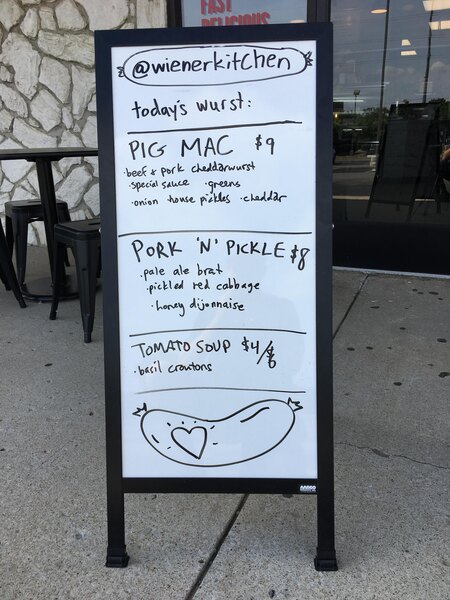 FAST
DELICIOUS
@wienerkitchen
today's wurst:
PIG MAC $9
· beef & pork cheddarwurst
· special sauce · greens
· onion · house pickles · cheddar
PORK 'N' PICKLE $8
· pale ale brat
· pickled red cabbage
· honey dijonnaise
TOMATO SOUP $4/$6
· basil croutons